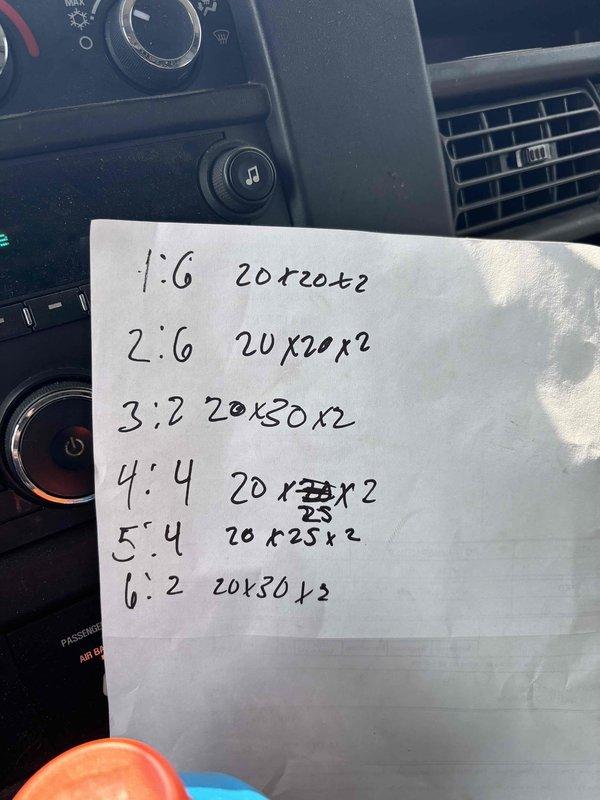 MAX
1:6 20x20x2
2:6 20x20x2
3:2 20x30x2
4:4 20x25x2
5:4 20x25x2
6:2 20x30x2
PASSENGE
AIR BA